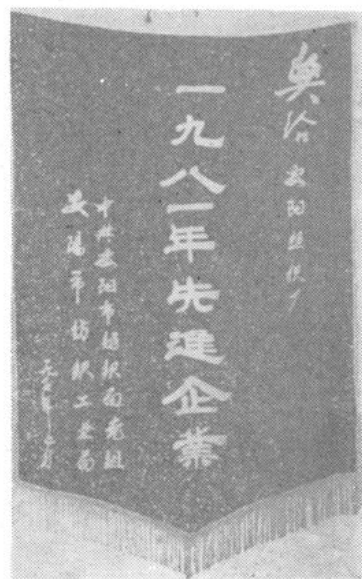 奬给 安阳丝织厂
一九八一年先進企業
中共安阳市纺织局党组
安陽市纺织工业局